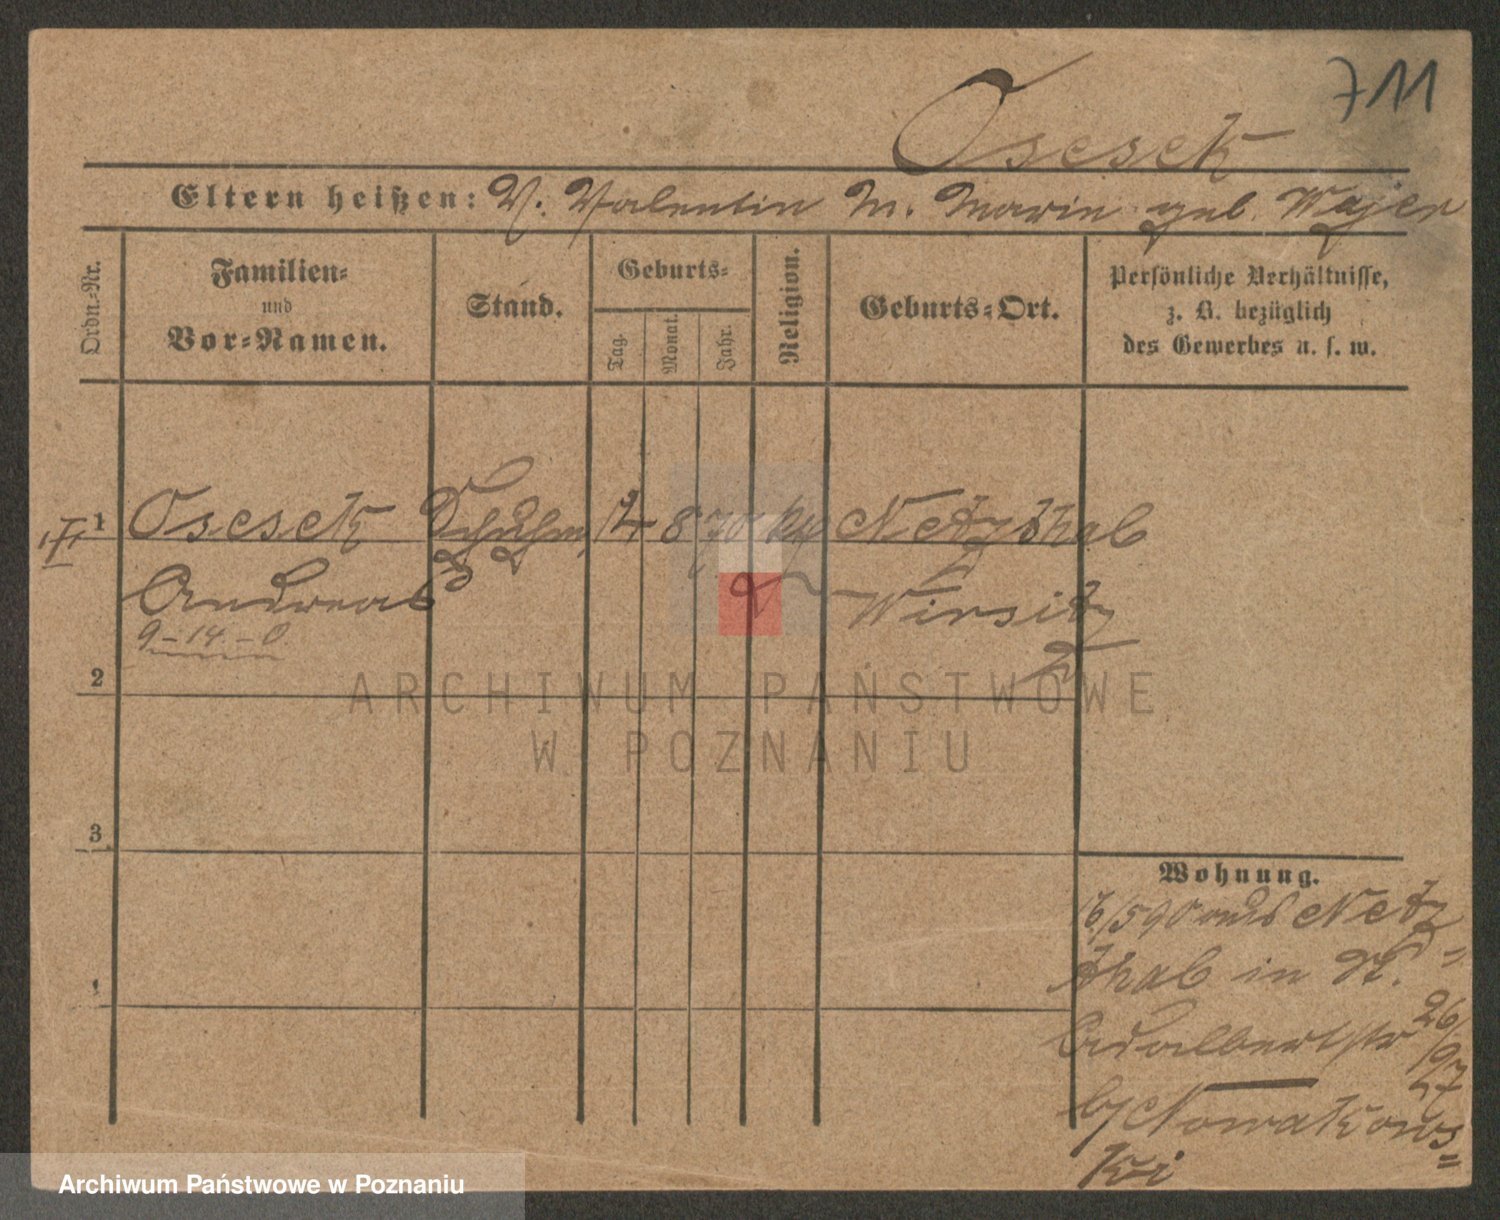 711
Osesek
Eltern heißen: V. Valentin M. Marie geb. Wajer
Ordn.-Nr.
Familien-
und
Vor-Namen.
Stand.
Geburts-
Tag.
Monat.
Jahr.
Religion.
Geburts-Ort.
Persönliche Verhältnisse,
z. B. bezüglich
des Gewerbes u. s. w.
1 Osesek 8 70 kth Netzthal
Andreas Wirsitz
9-14.-0.
2
3
Wohnung.
16/5 90 aus Netz-
thal in St.
Adalbertstr 26/27
by Nowakows-
ki
ARCHIWUM PAŃSTWOWE
W POZNANIU
Archiwum Państwowe w Poznaniu